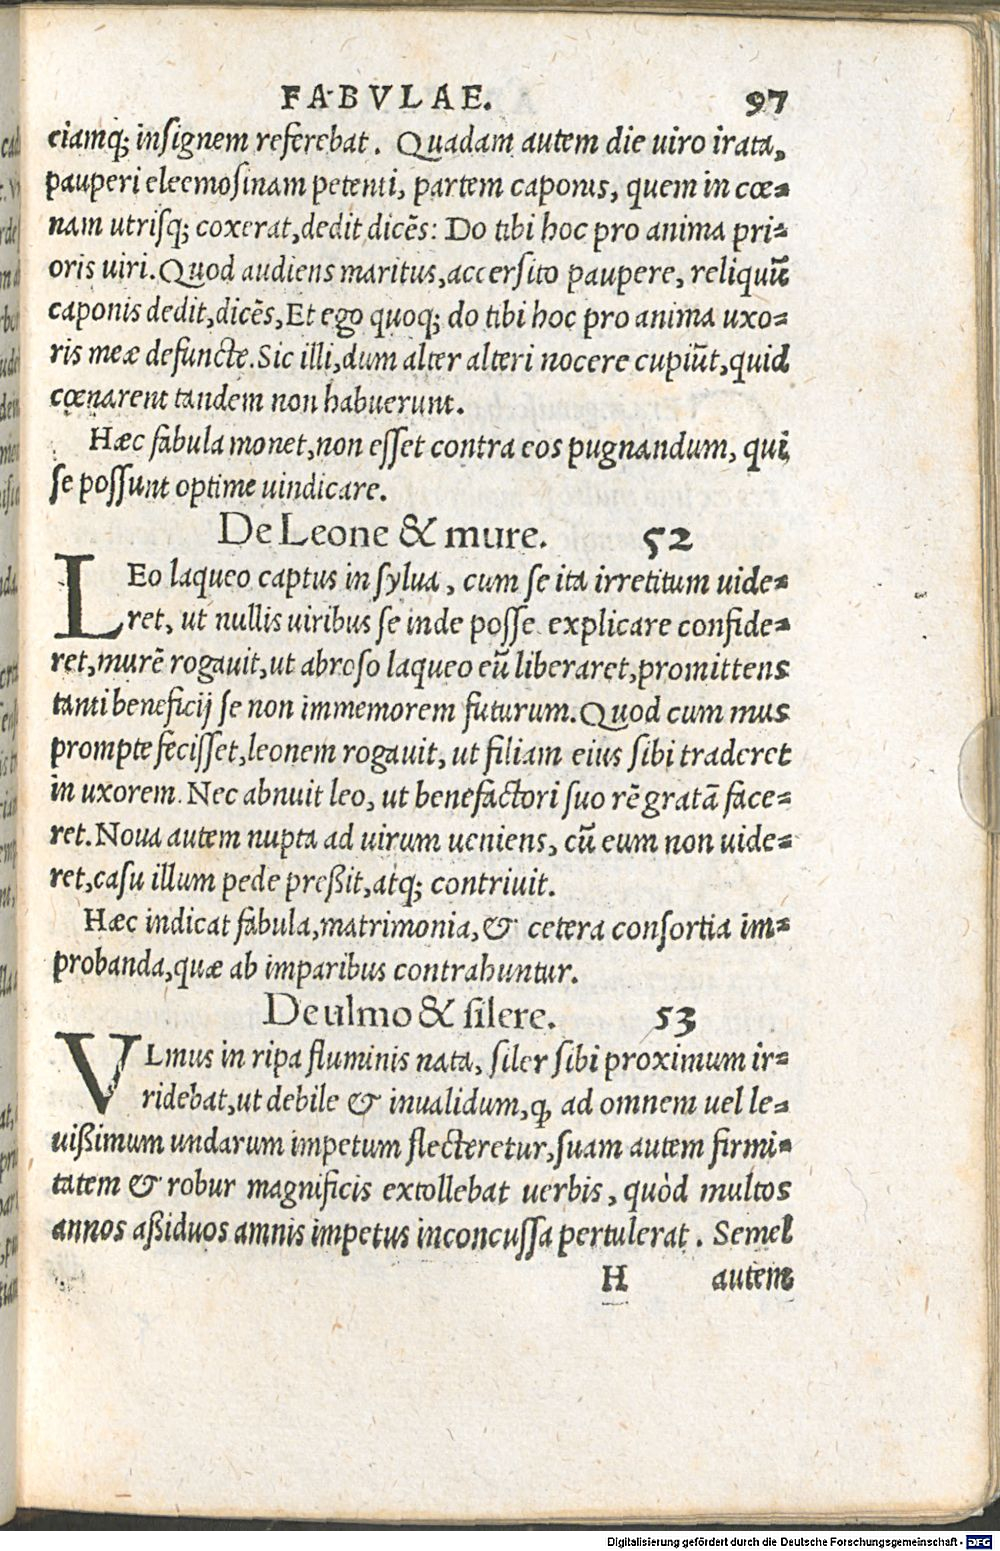 FABVLAE. 97
ciamq; insignem referebat. Quadam autem die viro irata,
pauperi eleemosinam petenti, partem caponis, quem in cœ-
nam utrisq; coxerat, dedit dicēs: Do tibi hoc pro anima pri-
oris viri. Quod audiens maritus, accersito paupere, reliquū
caponis dedit, dicēs, Et ego quoq; do tibi hoc pro anima uxo-
ris meæ defuncte. Sic illi, dum alter alteri nocere cupiūt, quid
cœnarent tandem non habuerunt.
Hæc fabula monet, non esset contra eos pugnandum, qui
se possunt optime vindicare.
De Leone & mure. 52
LEo laqueo captus in sylva, cum se ita irretitum uide-
ret, ut nullis viribus se inde posse explicare confide-
ret, murē rogavit, ut abroso laqueo eū liberaret, promittens
tanti beneficij se non immemorem futurum. Quod cum mus
prompte fecisset, leonem rogavit, ut filiam eius sibi traderet
in uxorem. Nec abnuit leo, ut benefactori suo rē gratā face-
ret. Nova autem nupta ad virum veniens, cū eum non uide-
ret, casu illum pede preßit, atq; contrivit.
Hæc indicat fabula, matrimonia, & cetera consortia im-
probanda, quæ ab imparibus contrahuntur.
De ulmo & silere. 53
VLmus in ripa fluminis nata, siler sibi proximum ir-
ridebat, ut debile & invalidum, ꝙ ad omnem vel le-
uißimum undarum impetum flecteretur, suam autem firmi-
tatem & robur magnificis extollebat verbis, quòd multos
annos aßiduos amnis impetus inconcussa pertulerat. Semel
H autem
Digitalisierung gefördert durch die Deutsche Forschungsgemeinschaft - DFG